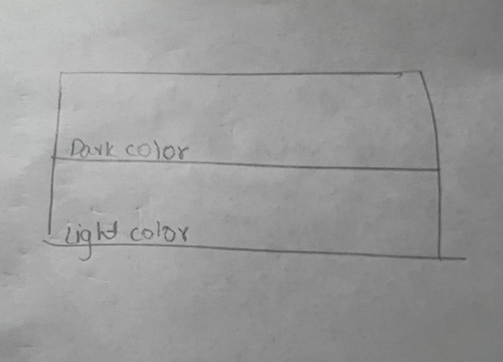 Dark color
Light color